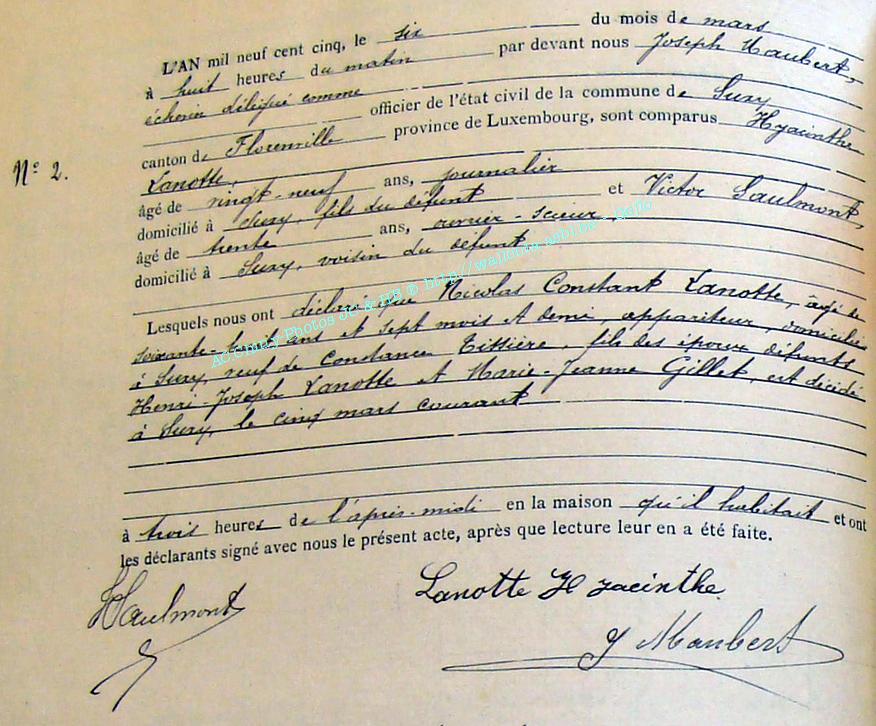 L'AN mil neuf cent cinq, le six du mois de mars
à huit heures du matin par devant nous Joseph Maubert,
échevin délégué comme
officier de l'état civil de la commune de Suxy
canton de Florenville province de Luxembourg, sont comparus Hyacinthe
N° 2.
Lanotte,
âgé de vingt-neuf ans, journalier
domicilié à Suxy, fils du défunt et Victor Saulmont,
âgé de trente ans, ouvrier-scieur,
domicilié à Suxy, voisin du défunt
Lesquels nous ont déclaré que Nicolas Constant Lanotte, âgé de
soixante-huit ans et sept mois et demi, appariteur, domicilié
à Suxy, veuf de Constance Tissière, fils des époux défunts
Henri-Joseph Lanotte et Marie-Jeanne Gillet, est décédé
à Suxy, le cinq mars courant
à trois heures de l'après-midi en la maison qu'il habitait et ont
les déclarants signé avec nous le présent acte, après que lecture leur en a été faite.
Saulmont
Lanotte Hyacinthe
J Maubert
Photos JC & HB @ http://wallonia.asbl.be